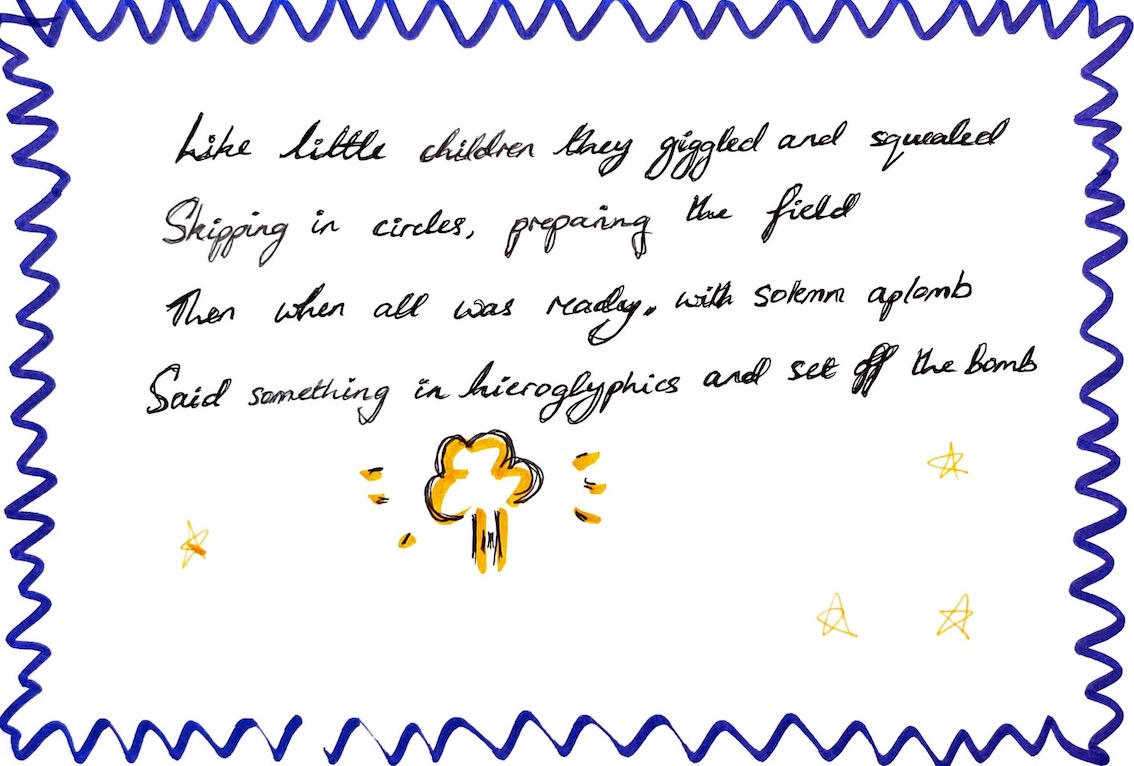 Like little children they giggled and squealed
Skipping in circles, preparing the field
Then when all was ready, with solemn aplomb
Said something in hieroglyphics and set off the bomb